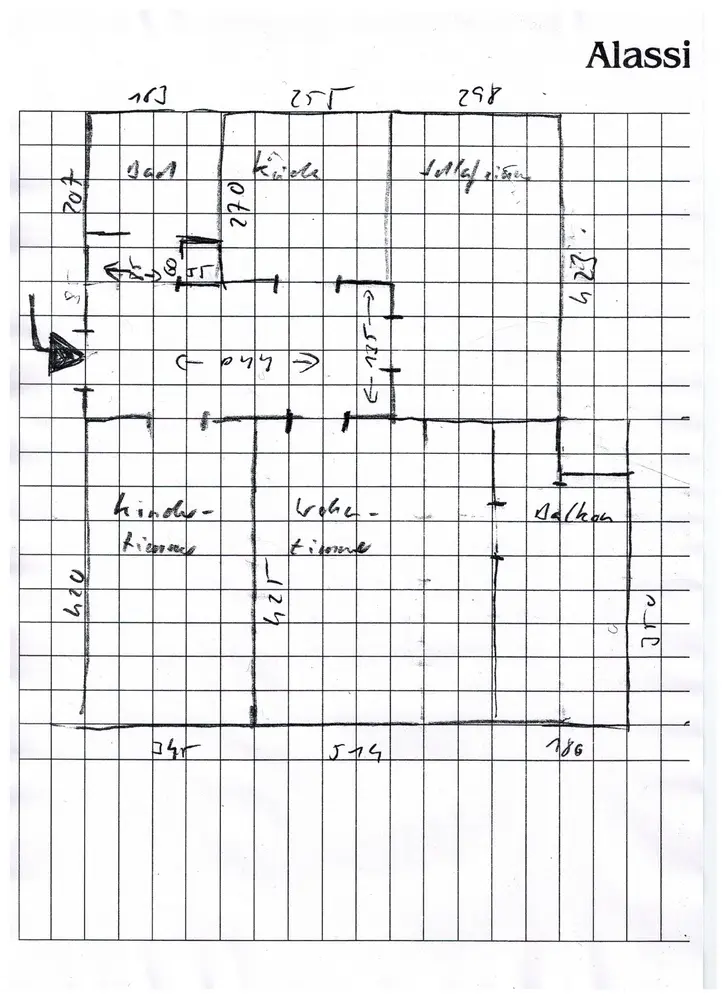 Alassi
163 255 298
Bad Küche Schlafzimmer
207
270
423
85
60
55
135
Kinder- Wohn- Balkon
zimmer zimmer
420
425
350
345 514 186